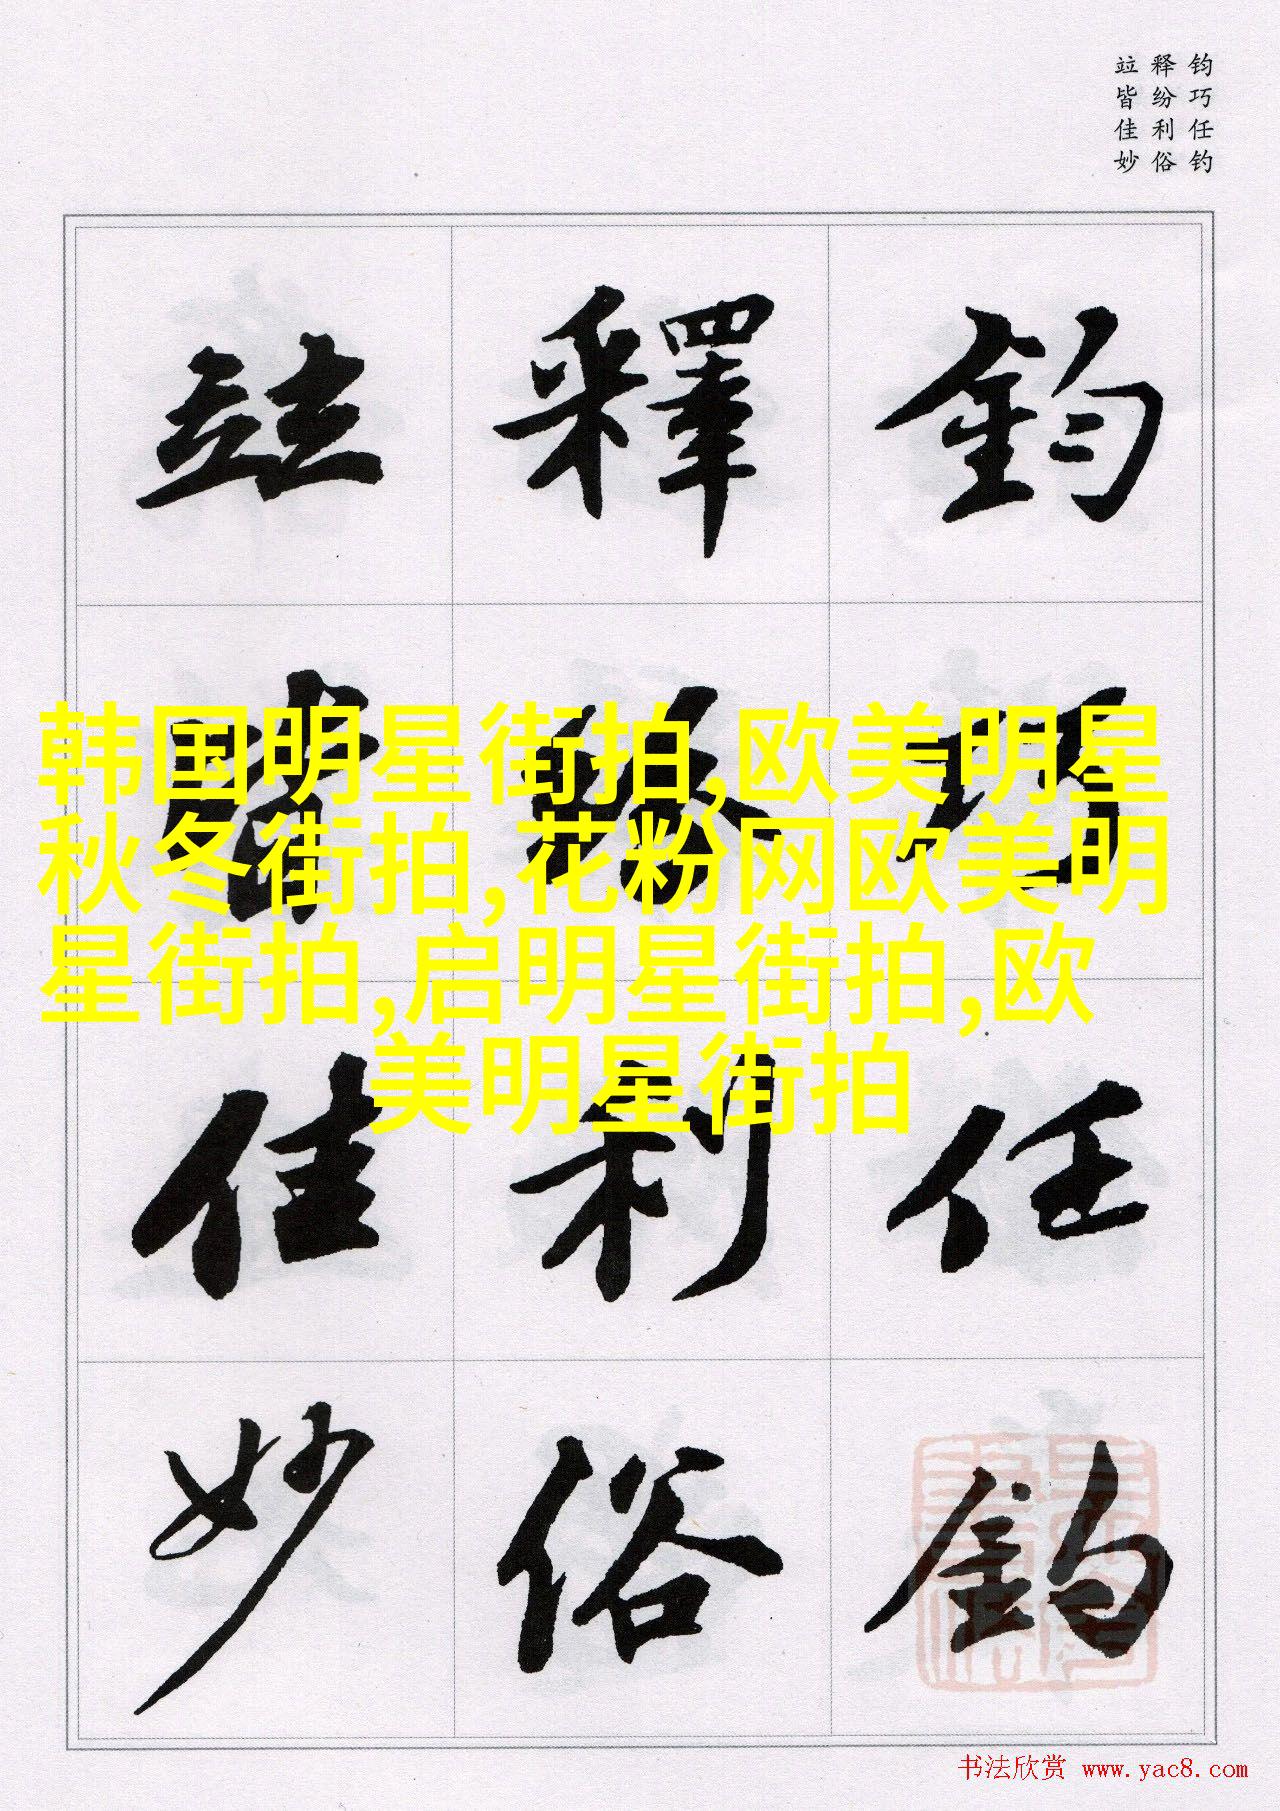 钧巧任钓
释纷利俗
竝皆佳妙
鈞
巧
任
釣
釋
紛
利
俗
竝
皆
佳
妙
韩国明星街拍,欧美明星
秋冬街拍,花粉网欧美明
星街拍,启明星街拍,欧
美明星街拍
书法欣赏 www.yac8.com